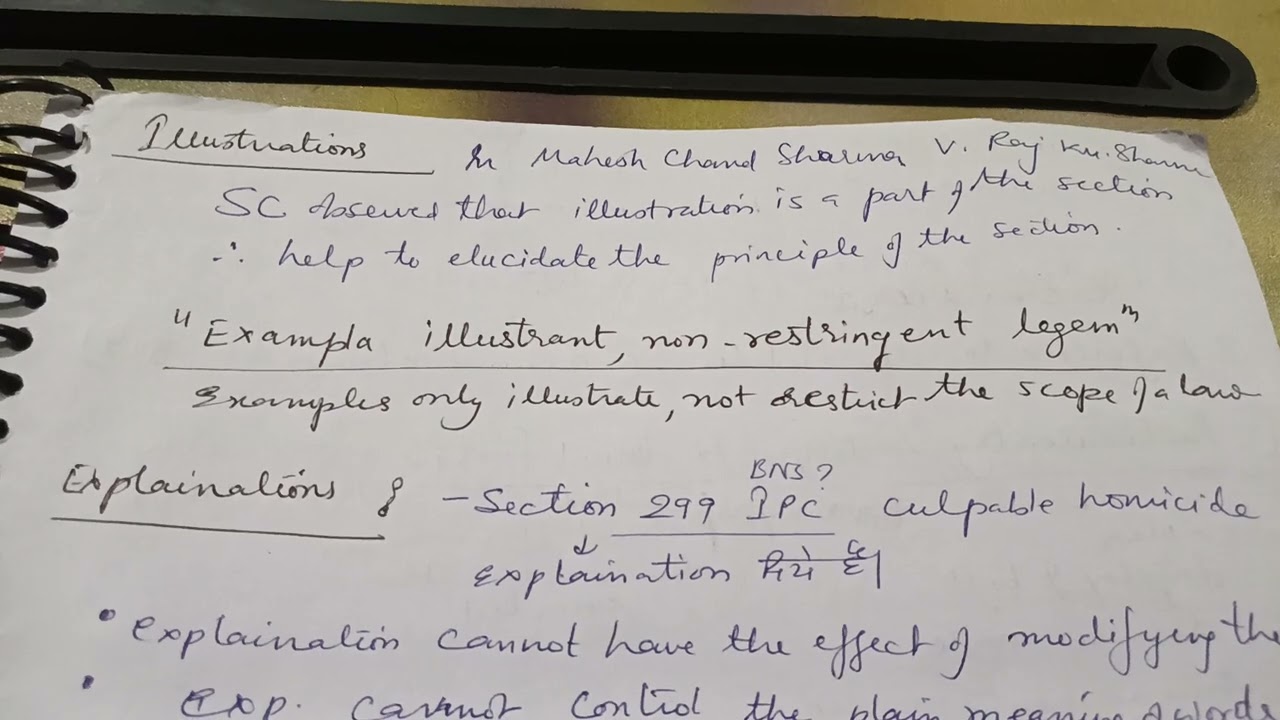 Illustrations In Mahesh Chand Sharma V. Raj Ku. Sharma
SC observed that illustration is a part of the section
∴ help to elucidate the principle of the section.
"Exampla illustrant, non-restringent legem"
Examples only illustrate, not restrict the scope of a law
BNS ?
Explainations : - Section 299 IPC culpable homicide
↓
explaination दिये है|
• explaination cannot have the effect of modifying the
• Exp. cannot control the plain meaning of words